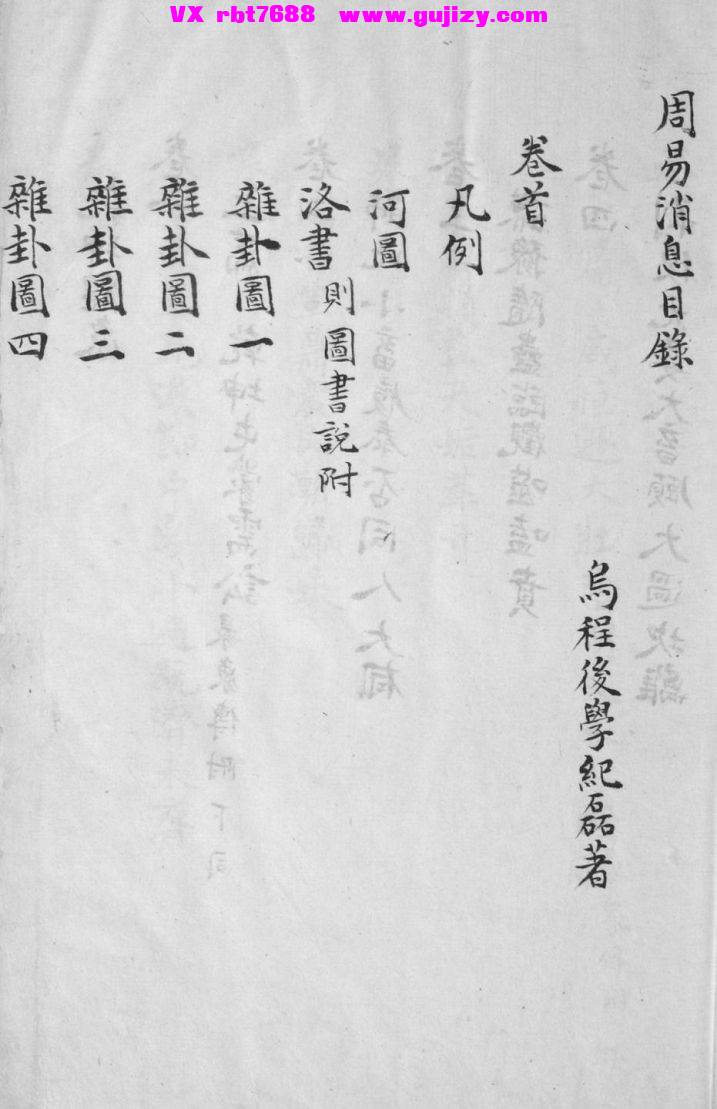 VX rbt7688 www.gujizy.com
周易消息目錄
烏程後學紀磊著
卷首
凡例
河圖
洛書 則圖書說附
雜卦圖一
雜卦圖二
雜卦圖三
雜卦圖四